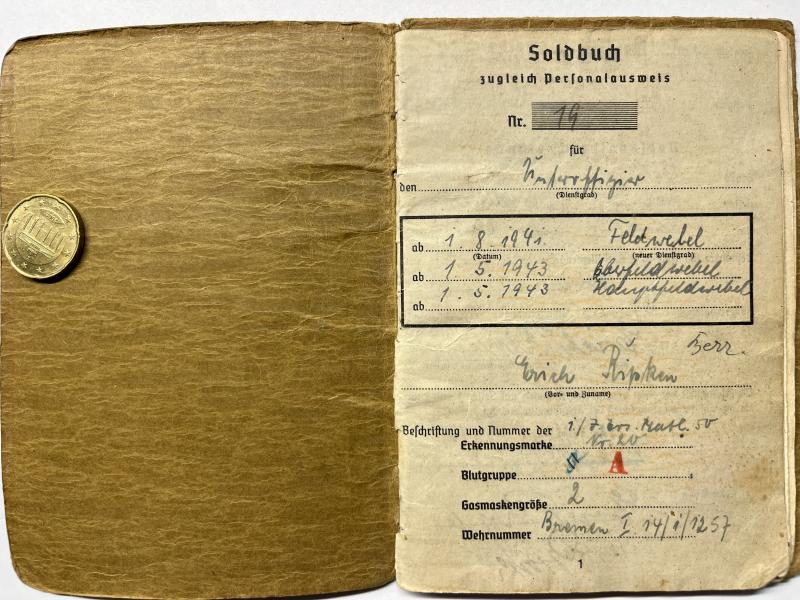 Soldbuch
zugleich Personalausweis
Nr. 19
für
den Unteroffizier
(Dienstgrad)
ab 1. 8. 1941. Feldwebel
(Datum) (neuer Dienstgrad)
ab 1. 5. 1943 Oberfeldwebel
ab 1. 5. 1943 Hauptfeldwebel
Erich Ripken
(Vor- und Zuname)
Beschriftung und Nummer der 1./J. Ers. Batl. 50
Erkennungsmarke Nr. 20
Blutgruppe A
Gasmaskengröße 2
Wehrnummer Bremen I 14/1/1257
1